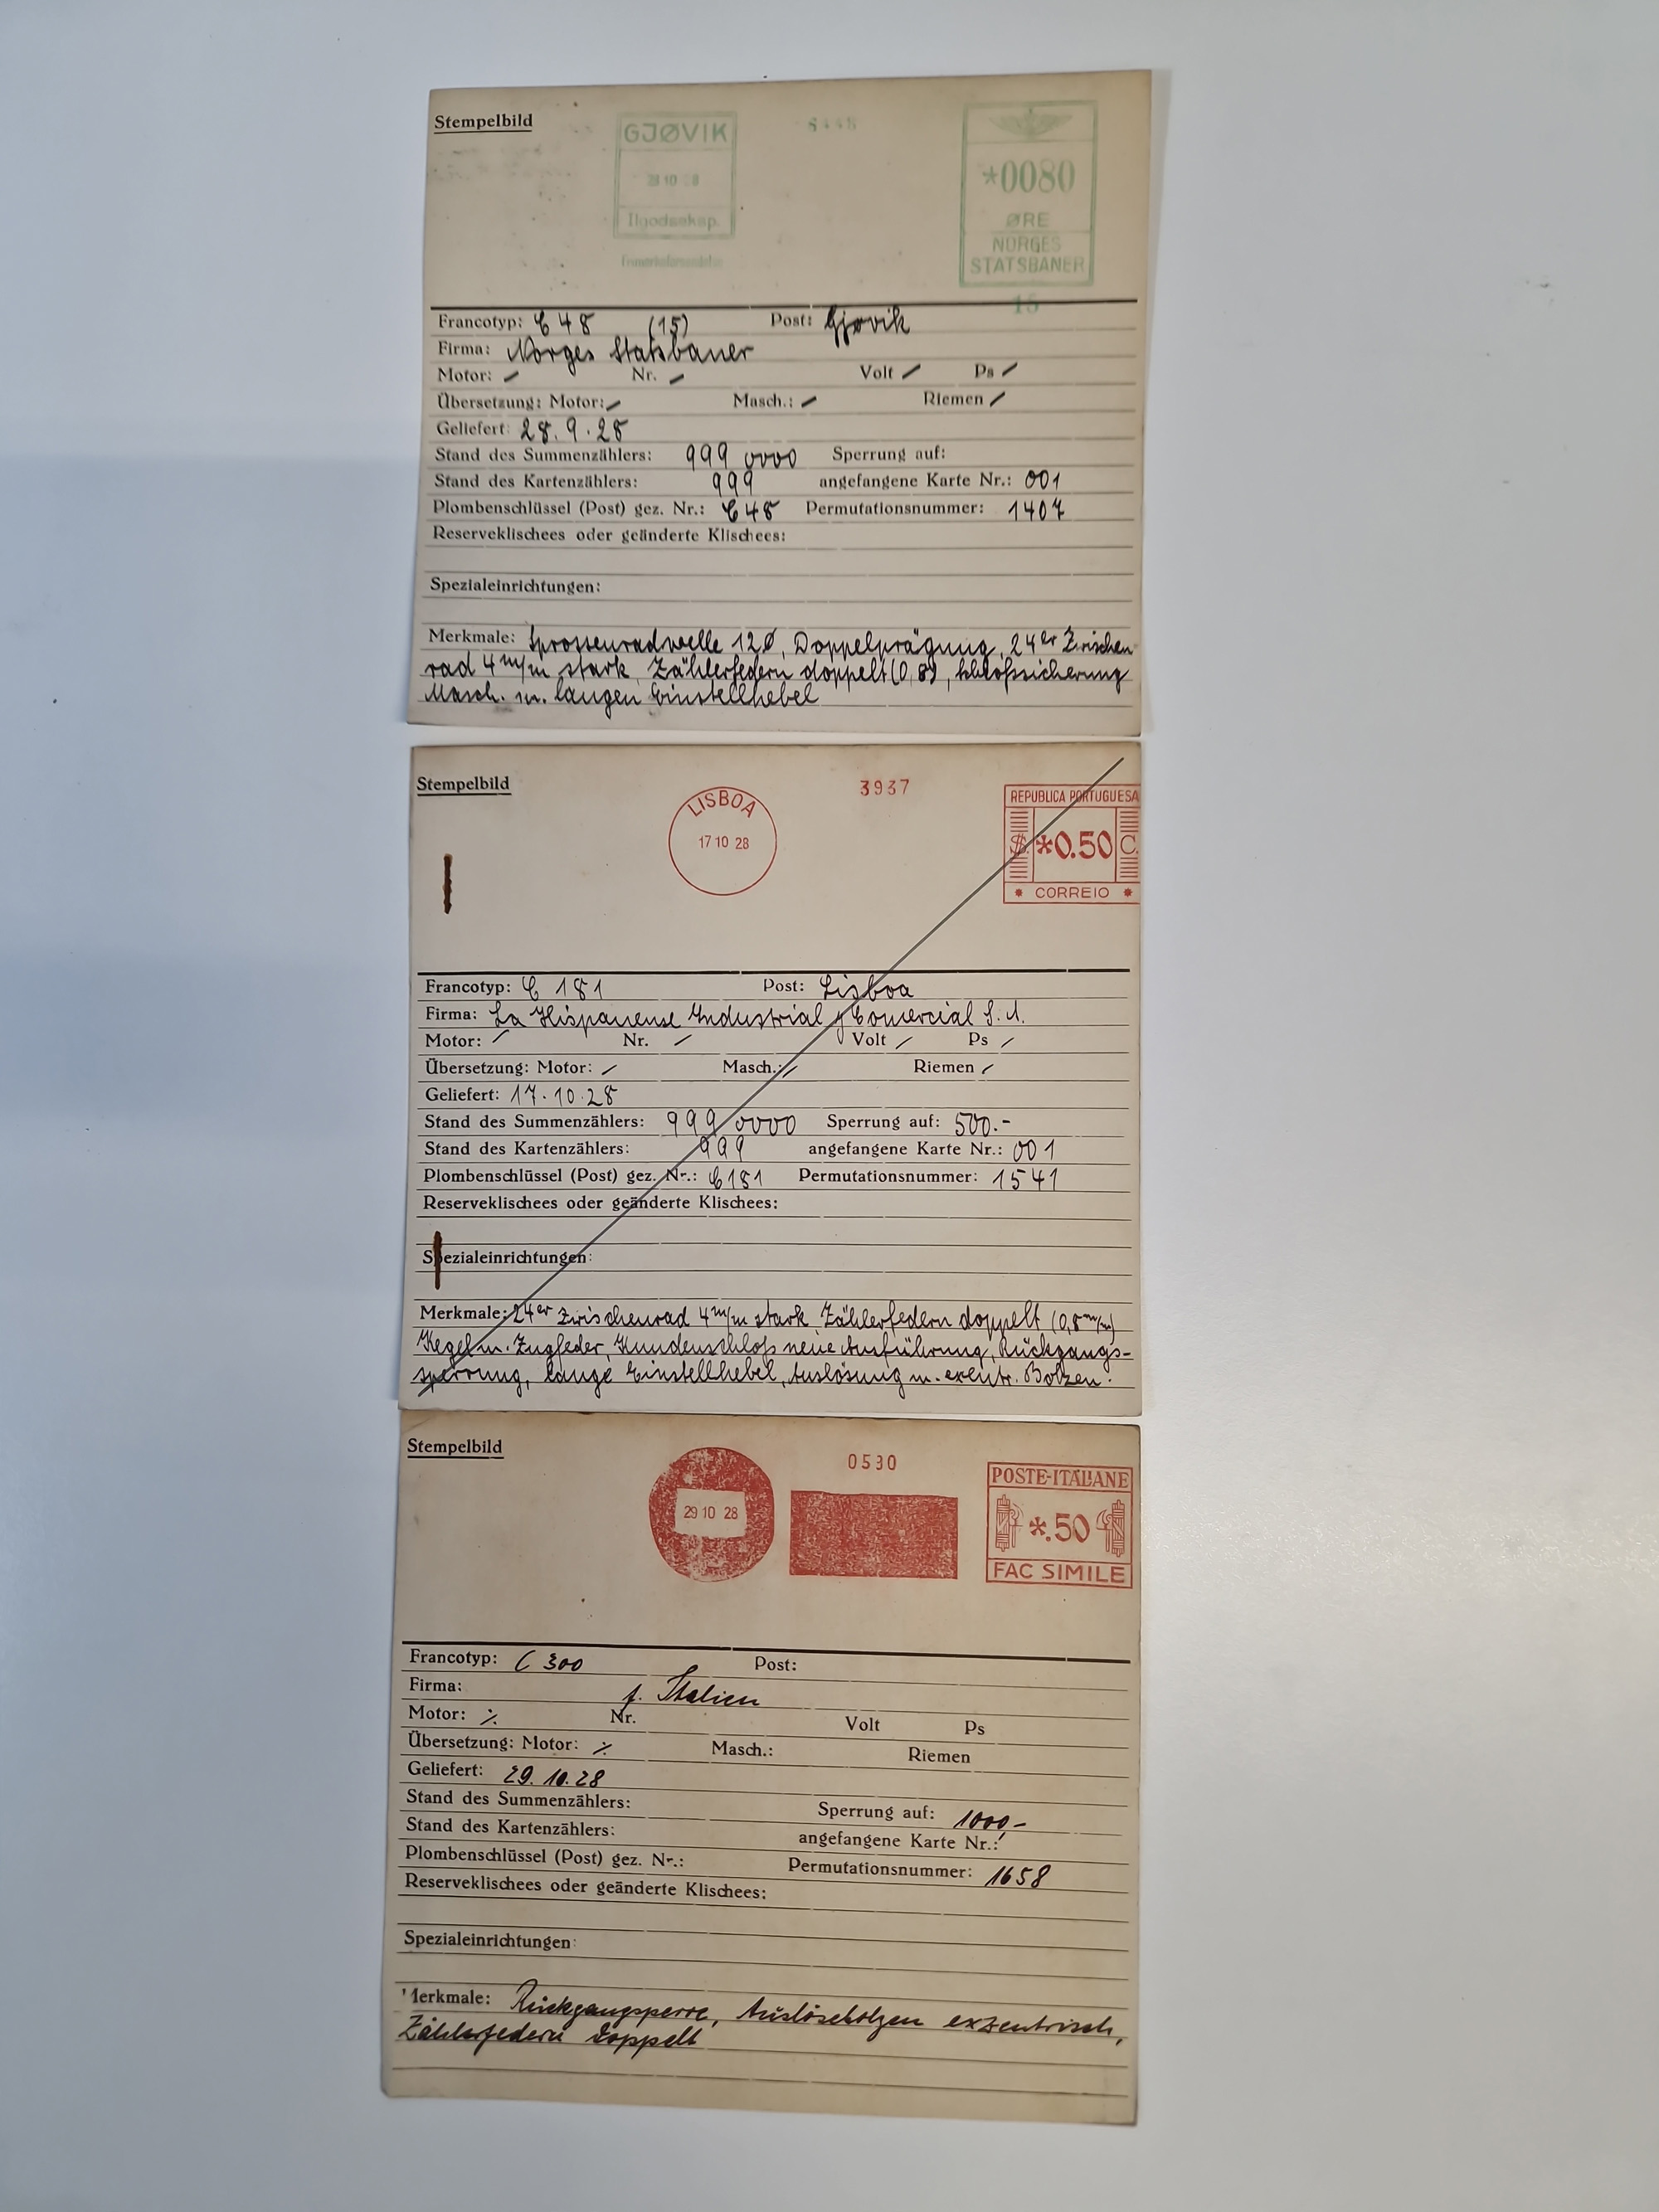 Stempelbild
GJØVIK
Ilgodseksp.
*0080
ØRE
NORGES
STATSBANER
15
Francotyp: C 48 (15) Post: Gjøvik
Firma: Norges Statsbaner
Motor: / Nr. / Volt / Ps /
Übersetzung: Motor: / Masch.: / Riemen /
Geliefert: 28.9.28
Stand des Summenzählers: 999 0000 Sperrung auf:
Stand des Kartenzählers: 999 angefangene Karte Nr.: 001
Plombenschlüssel (Post) gez. Nr.: C 48 Permutationsnummer: 1407
Reserveklischees oder geänderte Klischees:
Spezialeinrichtungen:
Merkmale: Sprossenradwelle 12 Ø, Doppelprägung, 24er Zwischen
rad 4 m/m stark, Zählerfedern doppelt (0,8), Schloßsicherung
Masch. m. langen Einstellhebel
Stempelbild
LISBOA
17 10 28
3937
REPUBLICA PORTUGUESA
$ *0.50 C.
* CORREIO *
Francotyp: C 181 Post: Lisboa
Firma: La Hispanense Industrial y Comercial S. A.
Motor: / Nr. / Volt / Ps /
Übersetzung: Motor: / Masch.: / Riemen /
Geliefert: 17.10.28
Stand des Summenzählers: 999 0000 Sperrung auf: 500.-
Stand des Kartenzählers: 999 angefangene Karte Nr.: 001
Plombenschlüssel (Post) gez. Nr.: C 181 Permutationsnummer: 1541
Reserveklischees oder geänderte Klischees:
Spezialeinrichtungen:
Merkmale: 24er Zwischenrad 4 m/m stark Zählerfedern doppelt (0,8 m/m)
Kegel m. Zugfeder, Kundenschloß neue Ausführung, Rückgangs-
sperrung, lange Einstellhebel, Auslösung m. exentr. Bolzen.
Stempelbild
29 10 28
0530
POSTE-ITALIANE
*.50
FAC SIMILE
Francotyp: C 300 Post:
Firma: f. Italien
Motor: ./. Nr. Volt Ps
Übersetzung: Motor: ./. Masch.: Riemen
Geliefert: 29.10.28
Stand des Summenzählers: Sperrung auf: 1000,-
Stand des Kartenzählers: angefangene Karte Nr.:
Plombenschlüssel (Post) gez. Nr.: Permutationsnummer: 1658
Reserveklischees oder geänderte Klischees:
Spezialeinrichtungen:
Merkmale: Rückgangsperre, Auslösebolzen exzentrisch,
Zählerfedern doppelt